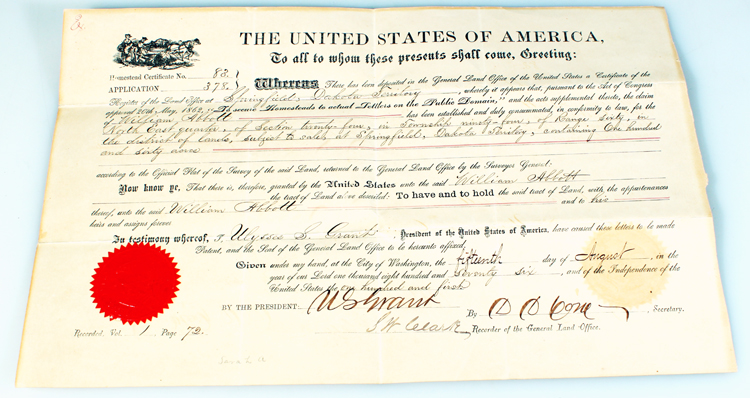 THE UNITED STATES OF AMERICA,
To all to whom these presents shall come, Greeting:
Homestead Certificate No. 83.
APPLICATION 378.
Whereas There has been deposited in the General Land Office of the United States a Certificate of the
Register of the Land Office at Springfield, Dakota Territory, whereby it appears that, pursuant to the Act of Congress
approved 20th May, 1862, "To secure Homesteads to actual Settlers on the Public Domain," and the acts supplemental thereto, the claim
of William Abbott has been established and duly consummated, in conformity to law, for the
North East quarter, of Section twenty four, in Township ninety-four, of Range sixty, in
the district of lands, subject to sale, at Springfield, Dakota Territory, containing One hundred
and sixty acres
according to the Official Plat of the Survey of the said Land, returned to the General Land Office by the Surveyor General:
Now know ye, That there is, therefore, granted by the United States unto the said William Abbott
the tract of Land above described: To have and to hold the said tract of Land, with the appurtenances
thereof, unto the said William Abbott and to his
heirs and assigns forever
In testimony whereof, I, Ulysses S. Grant, President of the United States of America, have caused these letters to be made
Patent, and the Seal of the General Land Office to be hereunto affixed.
Given under my hand, at the City of Washington, the fifteenth day of August, in the
year of our Lord one thousand eight hundred and Seventy Six, and of the Independence of the
United States the one hundred and first
BY THE PRESIDENT: U S Grant
By D D Cone, Secretary.
S W Clark, Recorder of the General Land Office.
Recorded, Vol. 1 Page 72.